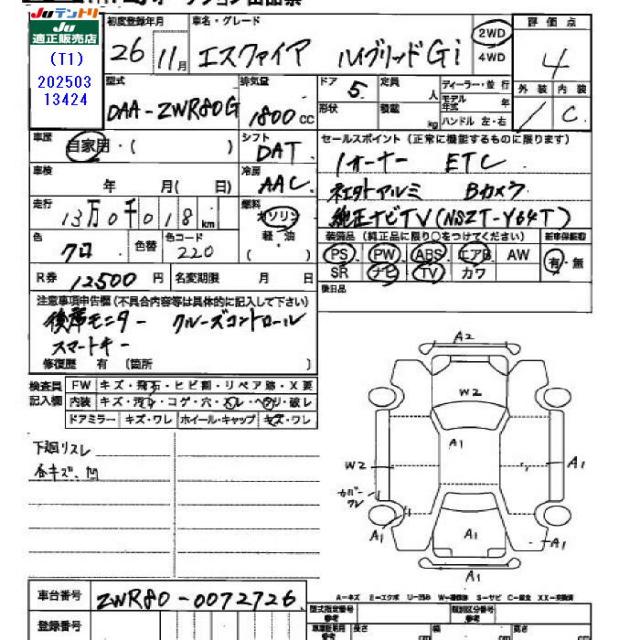 Juテントリ
Ju
適正販売店
(T1)
202503
13424
初度登録年月
26 11月
車名・グレード
エスクァイア ハイブリッドGi
2WD
4WD
評価点
4
外装 内装
C
型式
DAA-ZWR80G
排気量
1800cc
ドア 5
定員 人
形状
積載 kg
ディーラー・並行
モデル年式 年
ハンドル 左・右
車歴
自家用・( )
シフト
DAT
車検
年 月( 日)
冷房
AAC
走行
13万0千018km
燃料
ガソリン
軽・油
( )
色
クロ
色替
色コード
220
R券 12500円
名変期限 月 日
セールスポイント(正常に機能するものに限ります)
1オーナー ETC
社外アルミ Bカメラ
純正ナビTV(NSZT-Y64T)
装備品(純正品に限り○をつけてください)
新車保証書
PS PW ABS エアB AW
SR ナビ TV カワ
有・無
後日品
注意事項申告欄(不具合内容等は具体的に記入して下さい)
後席モニター クルーズコントロール
スマートキー
修復歴 有 (箇所 )
検査員
記入欄
FW キズ・飛石・ヒビ割・リペア跡・X要
内装 キズ・汚れ・コゲ・穴・スレ・ヘタリ・破レ
ドアミラー キズ・ワレ ホイール・キャップ キズ・ワレ
下廻リスレ
各キズ、凹
A2
W2
A1
A1
W2
A1
カバー
ワレ
A1
A1
A1
A…キズ E…エクボ U…凹み W…補修跡 S…サビ C…腐食 XX…交換済
車台番号 ZWR80-0072726
登録番号
型式指定番号
参考
類別区分番号
参考
長さ cm
幅 cm
高さ cm